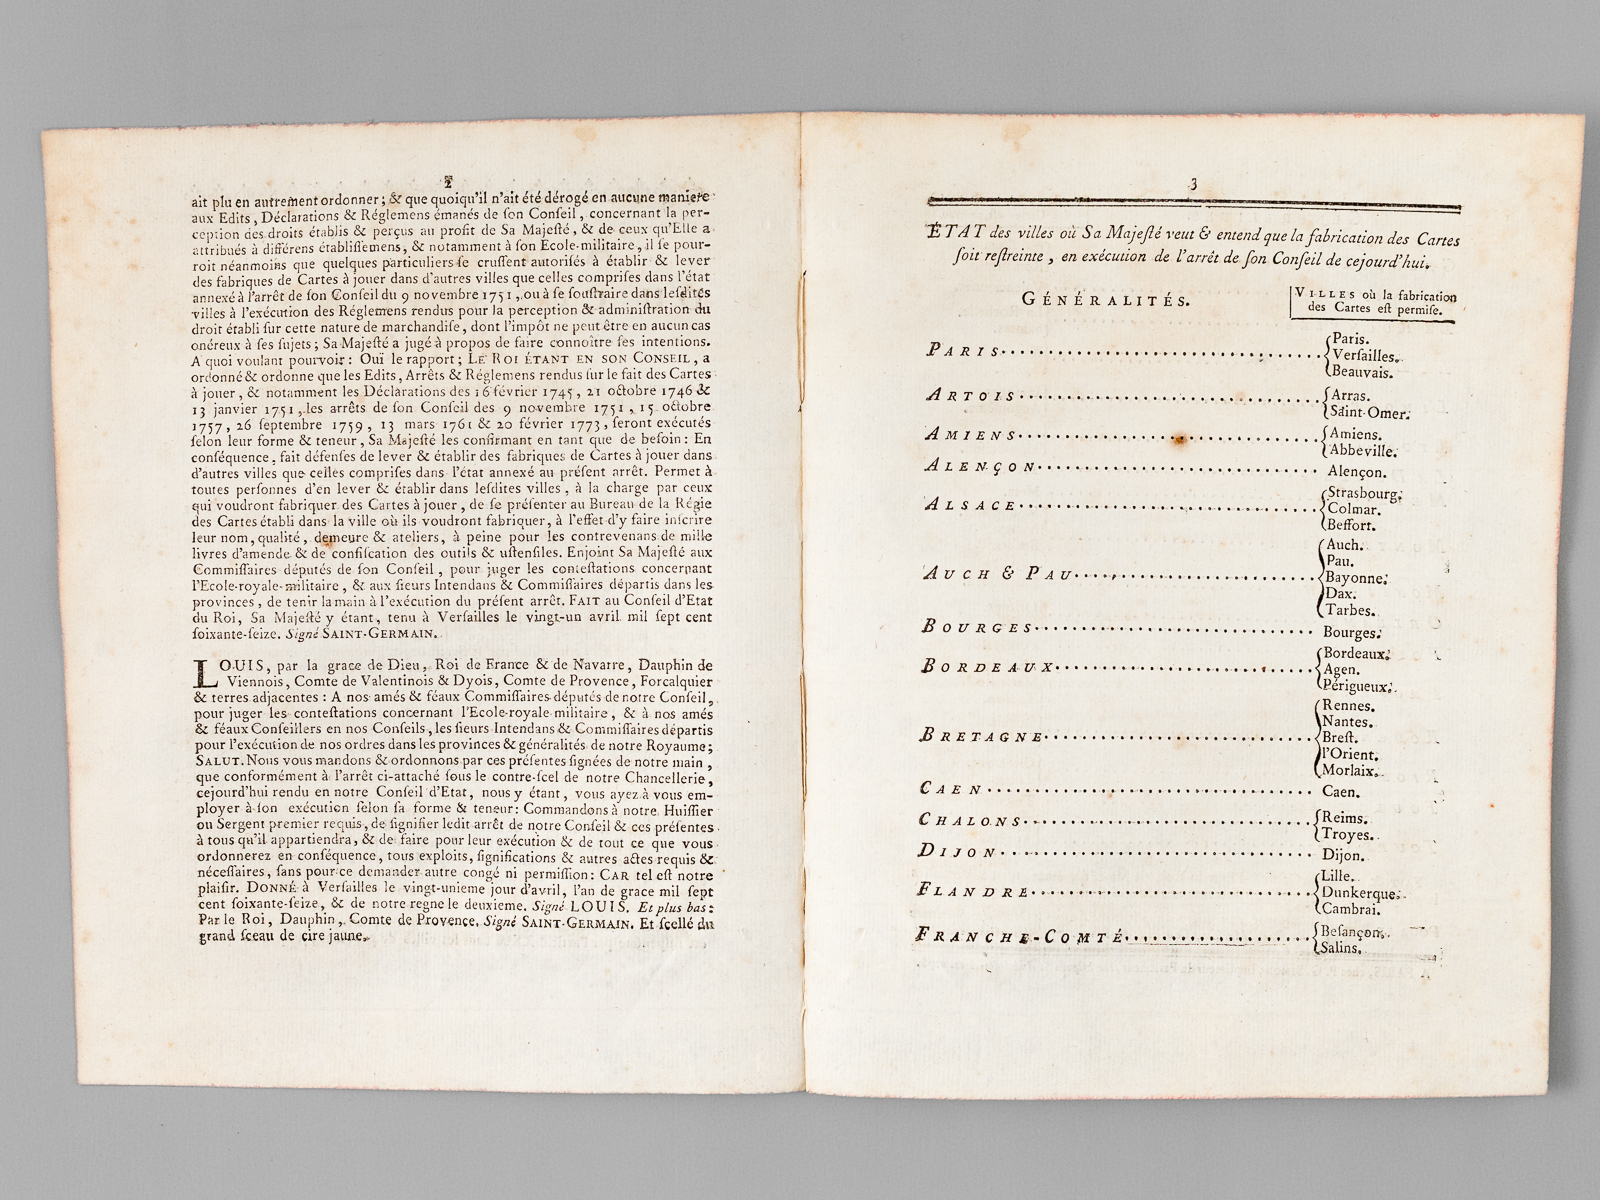 2
ait plu en autrement ordonner ; & que quoiqu'il n'ait été dérogé en aucune maniere
aux Edits, Déclarations & Réglemens émanés de ſon Conſeil, concernant la per-
ception des droits établis & perçus au profit de Sa Majeſté, & de ceux qu'Elle a
attribués à différens établiſſemens, & notamment à ſon Ecole-militaire, il ſe pour-
roit néanmoins que quelques particuliers ſe cruſſent autoriſés à établir & lever
des fabriques de Cartes à jouer dans d'autres villes que celles compriſes dans l'état
annexé à l'arrêt de ſon Conſeil du 9 novembre 1751, ou à ſe ſouſtraire dans leſdites
villes à l'exécution des Réglemens rendus pour la perception & adminiſtration du
droit établi ſur cette nature de marchandiſe, dont l'impôt ne peut être en aucun cas
onéreux à ſes ſujets ; Sa Majeſté a jugé à propos de faire connoître ſes intentions.
A quoi voulant pourvoir : Oui le rapport ; LE ROI ÉTANT EN SON CONSEIL, a
ordonné & ordonne que les Edits, Arrêts & Réglemens rendus ſur le fait des Cartes
à jouer, & notamment les Déclarations des 16 février 1745, 21 octobre 1746 &
13 janvier 1751, les arrêts de ſon Conſeil des 9 novembre 1751, 15 octobre
1757, 26 ſeptembre 1759, 13 mars 1761 & 20 février 1773, ſeront exécutés
ſelon leur forme & teneur, Sa Majeſté les confirmant en tant que de beſoin : En
conſéquence, fait défenſes de lever & établir des fabriques de Cartes à jouer dans
d'autres villes que celles compriſes dans l'état annexé au préſent arrêt. Permet à
toutes perſonnes d'en lever & établir dans leſdites villes, à la charge par ceux
qui voudront fabriquer des Cartes à jouer, de ſe préſenter au Bureau de la Régie
des Cartes établi dans la ville où ils voudront fabriquer, à l'effet d'y faire inſcrire
leur nom, qualité, demeure & ateliers, à peine pour les contrevenans de mille
livres d'amende & de confiſcation des outils & uſtenſiles. Enjoint Sa Majeſté aux
Commiſſaires députés de ſon Conſeil, pour juger les conteſtations concernant
l'Ecole-royale-militaire, & aux ſieurs Intendans & Commiſſaires départis dans les
provinces, de tenir la main à l'exécution du préſent arrêt. FAIT au Conſeil d'Etat
du Roi, Sa Majeſté y étant, tenu à Verſailles le vingt-un avril mil ſept cent
ſoixante-ſeize. Signé SAINT-GERMAIN.
LOUIS, par la grace de Dieu, Roi de France & de Navarre, Dauphin de
Viennois, Comte de Valentinois & Dyois, Comte de Provence, Forcalquier
& terres adjacentes : A nos amés & féaux Commiſſaires députés de notre Conſeil,
pour juger les conteſtations concernant l'Ecole-royale militaire, & à nos amés
& féaux Conſeillers en nos Conſeils, les ſieurs Intendans & Commiſſaires départis
pour l'exécution de nos ordres dans les provinces & généralités de notre Royaume ;
SALUT. Nous vous mandons & ordonnons par ces préſentes ſignées de notre main,
que conformément à l'arrêt ci-attaché ſous le contre-ſcel de notre Chancellerie,
cejourd'hui rendu en notre Conſeil d'Etat, nous y étant, vous ayez à vous em-
ployer à ſon exécution ſelon ſa forme & teneur : Commandons à notre Huiſſier
ou Sergent premier requis, de ſignifier ledit arrêt de notre Conſeil & ces préſentes
à tous qu'il appartiendra, & de faire pour leur exécution & de tout ce que vous
ordonnerez en conſéquence, tous exploits, ſignifications & autres actes requis &
néceſſaires, ſans pour ce demander autre congé ni permiſſion : CAR tel eſt notre
plaiſir. DONNÉ à Verſailles le vingt-unieme jour d'avril, l'an de grace mil ſept
cent ſoixante-ſeize, & de notre regne le deuxieme. Signé LOUIS. Et plus bas :
Par le Roi, Dauphin, Comte de Provence, Signé SAINT-GERMAIN. Et ſcellé du
grand ſceau de cire jaune.
3
ÉTAT des villes où Sa Majeſté veut & entend que la fabrication des Cartes
ſoit reſtreinte, en exécution de l'arrêt de ſon Conſeil de cejourd'hui.
GÉNÉRALITÉS.
VILLES où la fabrication
des Cartes eſt permiſe.
PARIS
Paris.
Verſailles.
Beauvais.
ARTOIS
Arras.
Saint-Omer.
AMIENS
Amiens.
Abbeville.
ALENÇON Alençon.
ALSACE
Strasbourg.
Colmar.
Beffort.
AUCH & PAU
Auch.
Pau.
Bayonne.
Dax.
Tarbes.
BOURGES Bourges.
BORDEAUX
Bordeaux.
Agen.
Périgueux.
BRETAGNE
Rennes.
Nantes.
Breſt.
l'Orient.
Morlaix.
CAEN Caen.
CHALONS
Reims.
Troyes.
DIJON Dijon.
FLANDRE
Lille.
Dunkerque.
Cambrai.
FRANCHE-COMTÉ
Beſançon.
Salins.